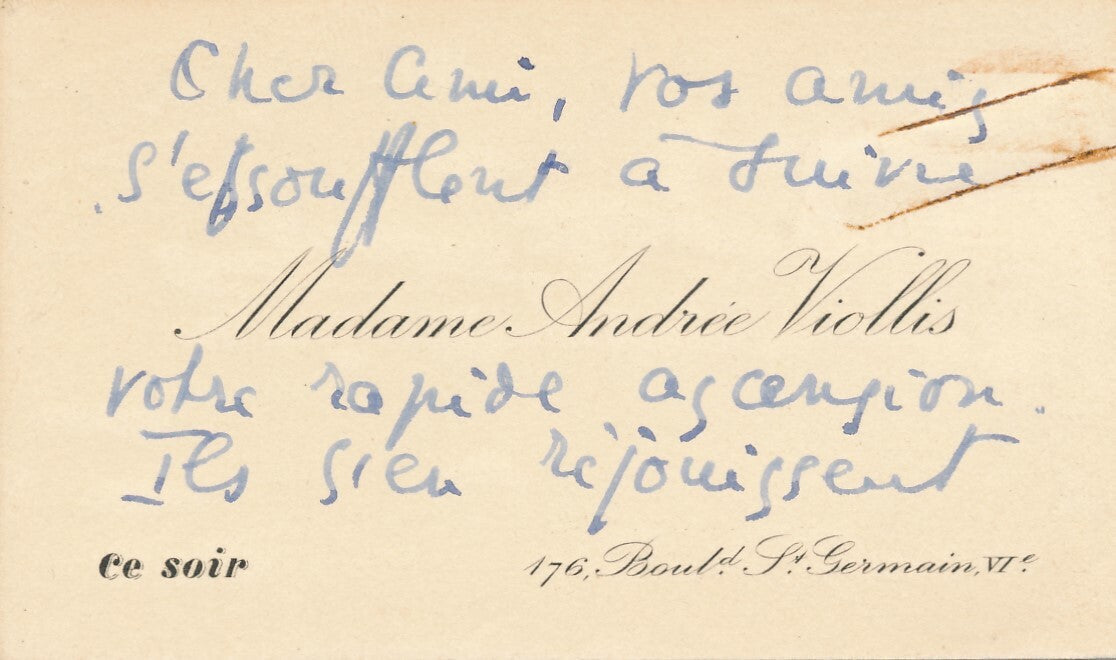 Cher Ami, vos amis
s'essoufflent à suivre
Madame Andrée Viollis
votre rapide ascension.
Ils s'en réjouissent
ce soir
176, Boul.d S.t Germain, VIe